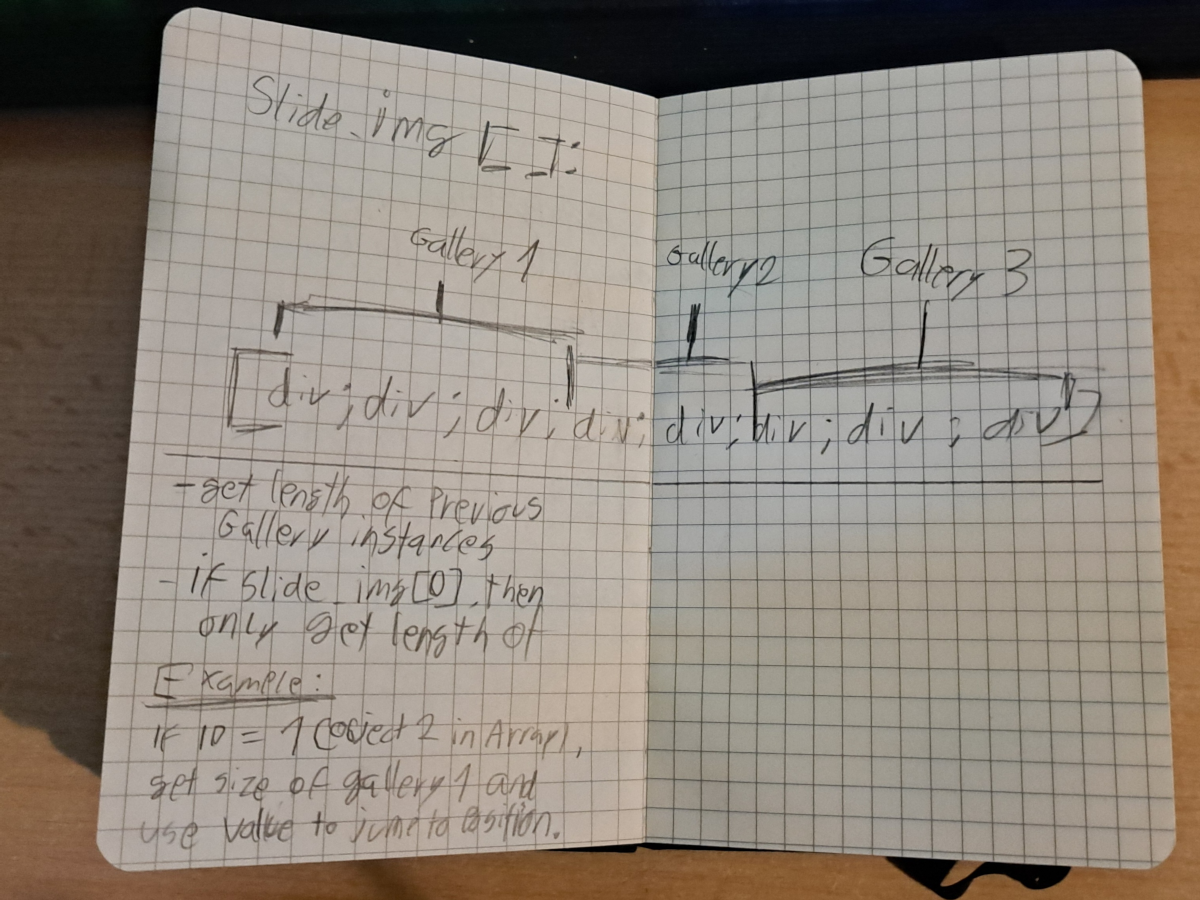 Slide_img [ ]:
Gallery 1 Gallery2 Gallery 3
[div;div;div;div;div;div;div;div]
- get length of Previous
Gallery instances
- if slide_img[0], then
only get length of
Example:
If ID = 1 (Object 2 in Array),
get size of gallery 1 and
use value to jump to Position.